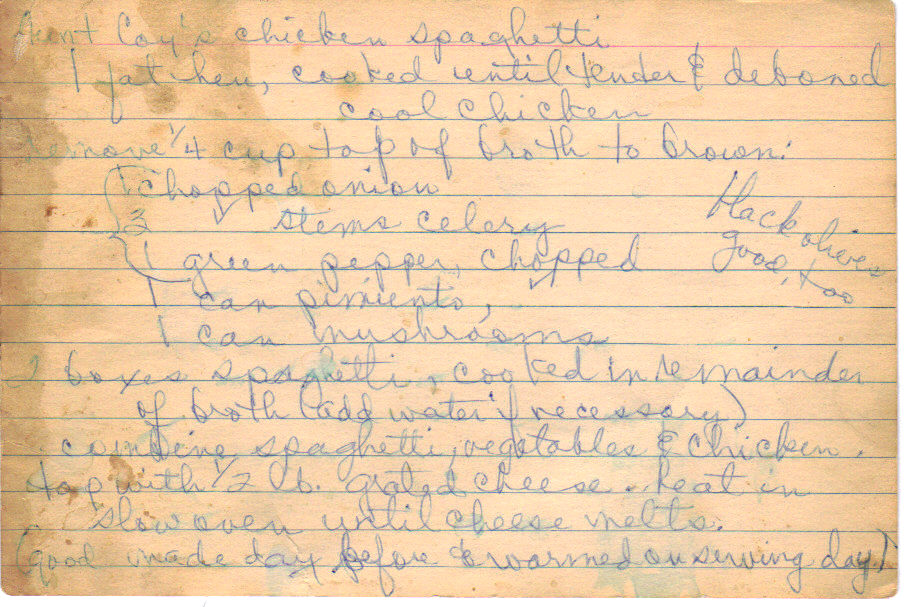 Aunt Coy's chicken spaghetti
1 fat hen, cooked until tender & deboned
cool chicken
Remove 1/4 cup top of broth to brown:
1 chopped onion
3 " stems celery
1 green pepper, chopped
1 can pimiento, "
1 can mushrooms
Black olives
good, too
2 boxes spaghetti, cooked in remainder
of broth (add water if necessary)
combine spaghetti, vegetables & chicken.
top with 1/2 lb. grated cheese. heat in
slow oven until cheese melts.
(good made day before & warmed on serving day!)